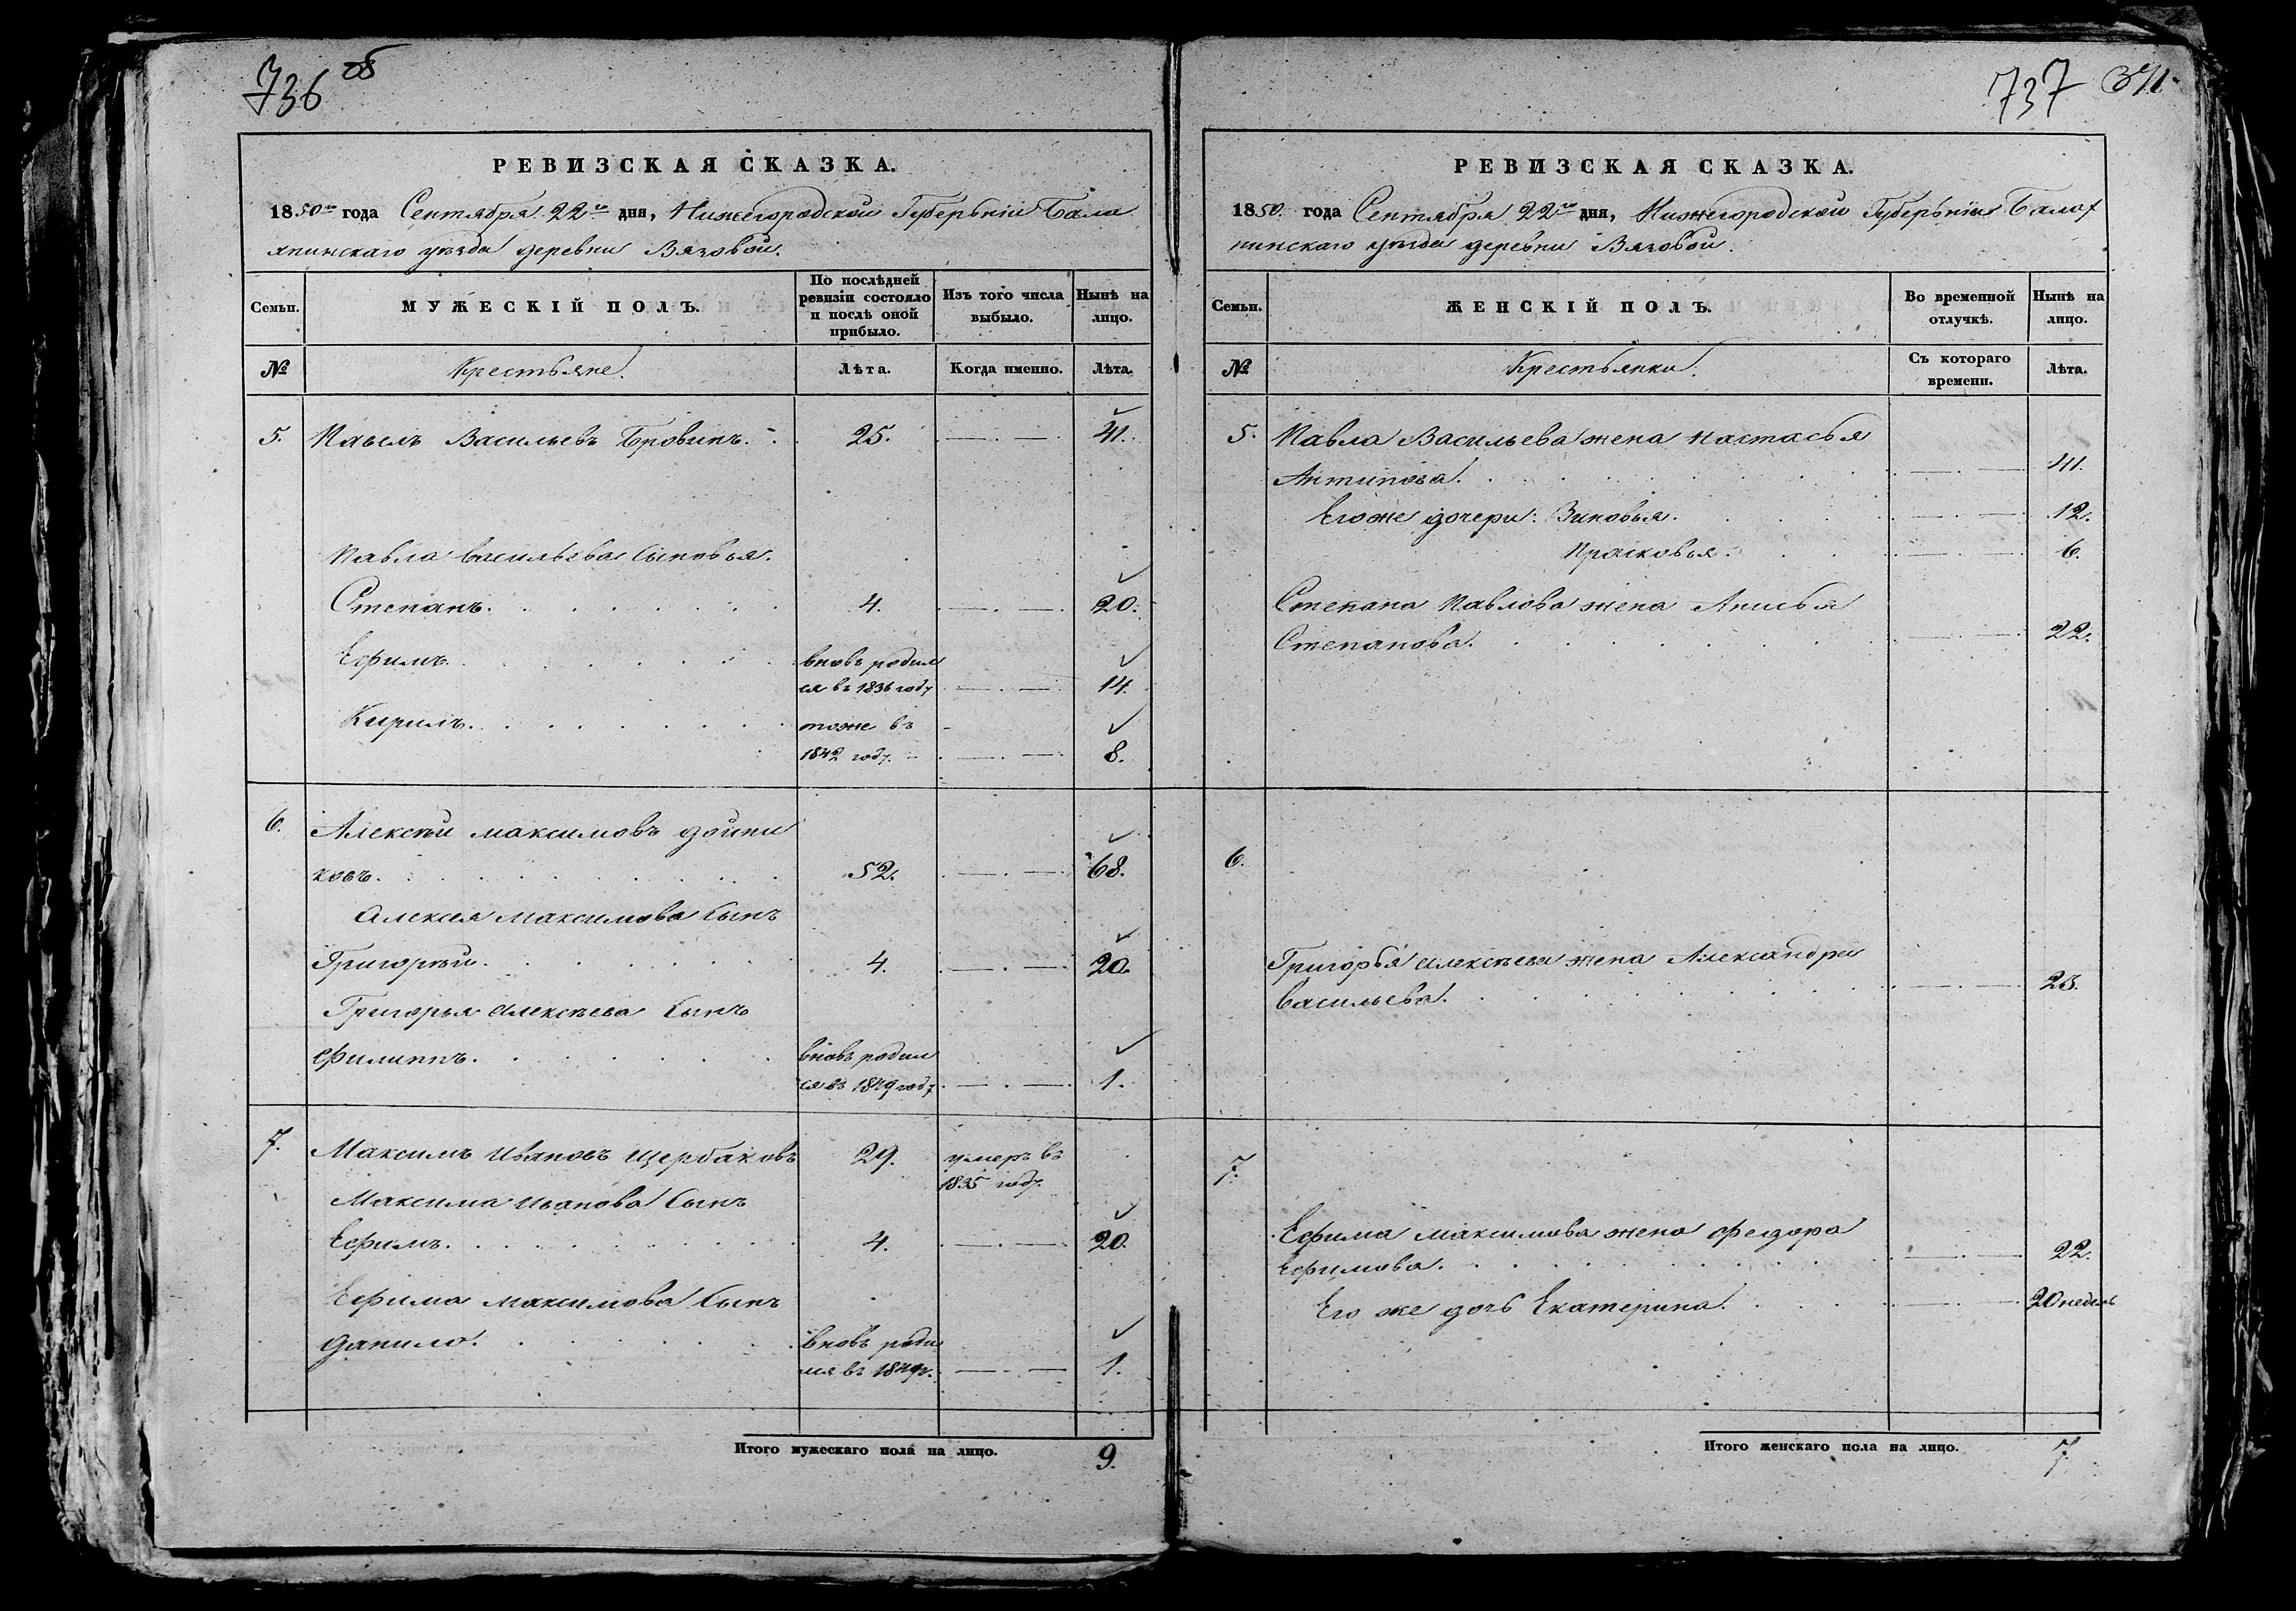 736 об
РЕВИЗСКАЯ СКАЗКА.
1850го года Сентября 22го дня, Нижегородской Губерьнии Бала
хнинскаго уѣзда деревни Вязовой.
Семьи.
МУЖЕСКІЙ ПОЛЪ.
По послѣдней ревизіи состояло и послѣ оной прибыло.
Изъ того числа выбыло.
Нынѣ на лицо.
№
Крестьяне.
Лѣта.
Когда именно.
Лѣта.
5. Павелъ Васильевъ Бровинъ. 25. 41.
Павла Васильева Сыновья.
Степанъ. 4. 20.
Ефимъ. вновь родил
ся въ 1836 году 14.
Кирилъ. тоже въ
1842 году. 8.
6. Алексѣй максимовъ дойни
ковъ. 52. 68.
Алексея максимова Сынъ
Григорѣй. 4. 20.
Григорья Алексѣева Сынъ
Филиппъ. вновь родил
ся въ 1849 году 1.
7. Максимъ Ивановъ Щербаковъ 29. умеръ въ
1835 году.
Максима Иванова Сынъ
Ефимъ. 4. 20.
Ефима максимова Сынъ
Данило. вновь роди
лся въ 1849г. 1.
Итого мужескаго пола на лицо. 9.
737 371
РЕВИЗСКАЯ СКАЗКА.
1850. года Сентября 22го дня, Нижегородской Губерьніи Балах
нинскаго уѣзда деревни Вязовой.
Семьи.
ЖЕНСКІЙ ПОЛЪ.
Во временной отлучкѣ.
Нынѣ на лицо.
№
Крестьянки.
Съ котораго времени.
Лѣта.
5. Павла Васильева жена Настасья
Антипова. 41.
Его же дочери: Зиновья. 12.
Прасковья. 6.
Степана Павлова жена Анисья
Степанова. 22.
6.
Григорья Алексѣева жена Александра
Васильева. 23.
7.
Ефима максимова жена Федора
Ефимова. 22.
Его же дочь Екатерина. 20 недель
Итого женскаго пола на лицо. 7.